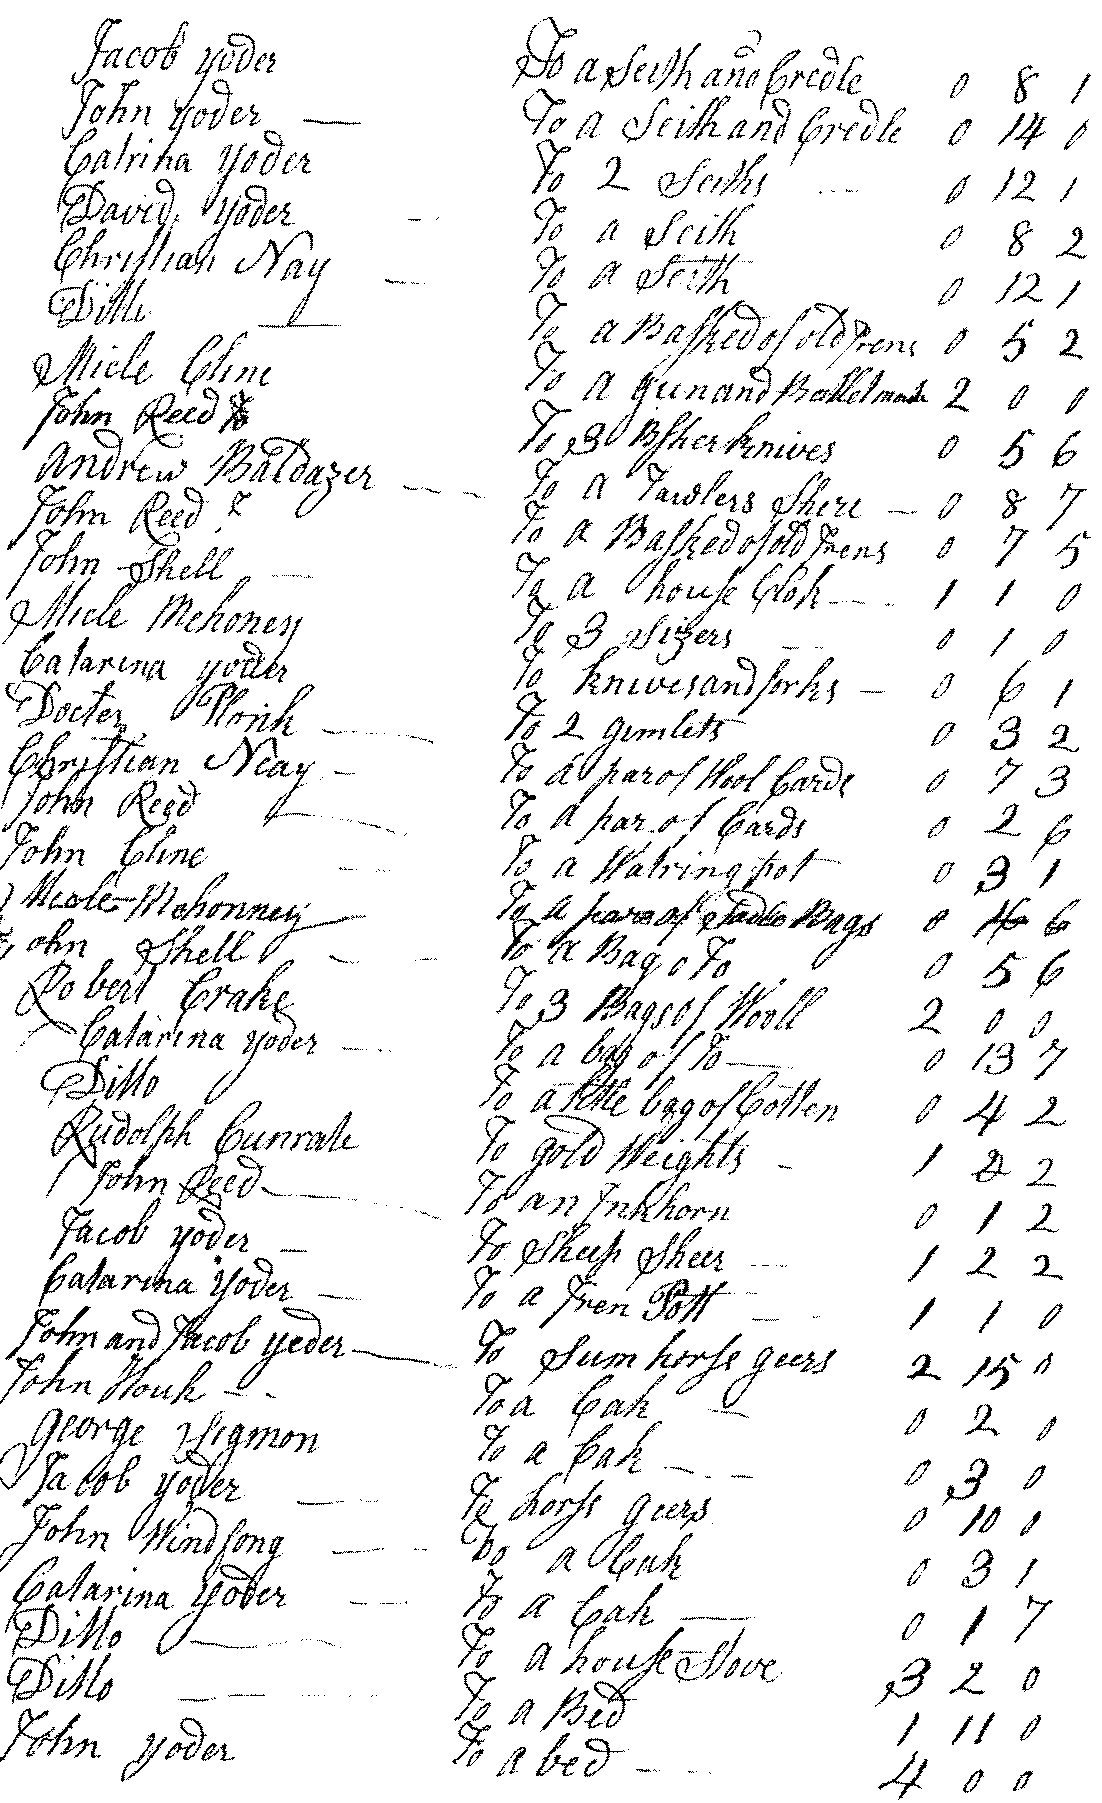 Jacob Yoder To a Seith and Credle 0 8 1
John Yoder — To a Seith and Credle 0 14 0
Catrina Yoder To 2 Seiths 0 12 1
David Yoder To a Seith 0 8 2
Christian Nay — To a Seith 0 12 1
Ditto — To a Basked of old Irens 0 5 2
Micle Cline To a gun and Bullet 2 0 0
John Reed To 3 Bsher knives 0 5 6
Andrew Baldazer — To a Tawlers Shere — 0 8 7
John Reed To a Basked of old Irens 0 7 5
John Shell — To a house Clok — 1 1 0
Micle Mehoney To 3 Sizers 0 1 0
Catarina Yoder To knives and forks — 0 6 1
Docter Plonk — To 2 gimlets 0 3 2
Christian Neay — To a par of Wool Cards 0 7 3
John Reed To a par of Cards 0 2 6
John Cline — To a Watring pot 0 3 1
Micle Mehonney To a pare of Sadle Bags 0 4 6
John Shell — To a Bag o To 0 5 6
Robert Crake To 3 Bags of Wooll 2 0 0
Catarina Yoder — To a bag of To — 0 13 7
Ditto To a little bag of Cotten 0 4 2
Rudolph Cunrate To gold Weights — 1 2 2
John Reed — To an Inkhorn 0 1 2
Jacob Yoder — To Sheep Sheer 1 2 2
Catarina Yoder — To a Iren Pott — 1 1 0
John and Jacob Yoder — To Sum horss geers 2 15 0
John Houk — To a Cak — 0 2 0
George Sigmon To a Cak — 0 3 0
Jacob Yoder — To horss geers 0 10 0
John Windsong — To a Cak 0 3 1
Catarina Yoder — To a Cak — 0 1 7
Ditto — To a house Stove 3 2 0
Ditto — To a Bed 1 11 0
John Yoder To a bed — 4 0 0